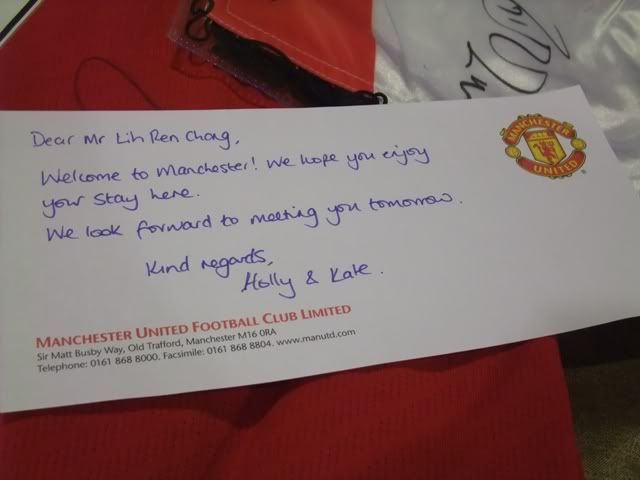 Dear Mr Lih Ren Chong,
Welcome to Manchester! We hope you enjoy
your stay here.
We look forward to meeting you tomorrow.
Kind regards,
Holly & Kate.
MANCHESTER
UNITED
MANCHESTER UNITED FOOTBALL CLUB LIMITED
Sir Matt Busby Way, Old Trafford, Manchester M16 0RA
Telephone: 0161 868 8000. Facsimile: 0161 868 8804. www.manutd.com